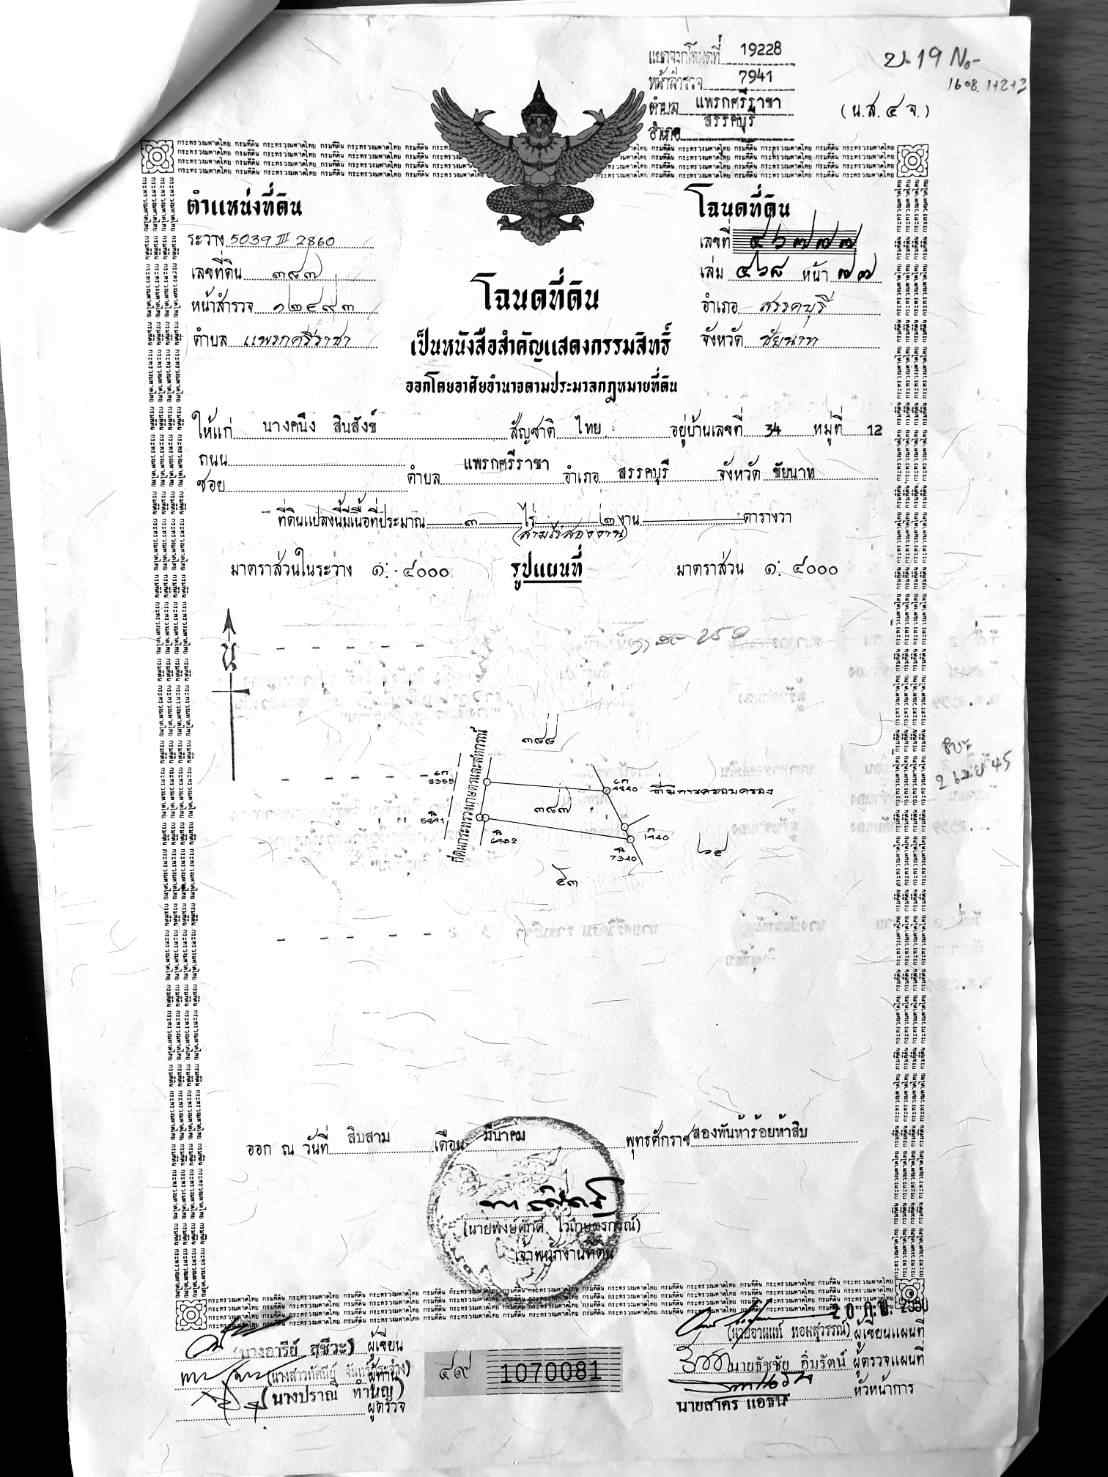 แยกจากโฉนดที่ 19228
หน้าสำรวจ 7941
ตำบล แพรกศรีราชา
อำเภอ สรรคบุรี
(น.ส. ๔ จ.)
ตำแหน่งที่ดิน
โฉนดที่ดิน
ระวาง 5039 III 2860
เลขที่ ๔๖๗๗๗
เลขที่ดิน ๓๘๗
เล่ม ๔๖๘ หน้า ๗๗
หน้าสำรวจ ๑๒๔๙๓
อำเภอ สรรคบุรี
ตำบล แพรกศรีราชา
จังหวัด ชัยนาท
โฉนดที่ดิน
เป็นหนังสือสำคัญแสดงกรรมสิทธิ์
ออกโดยอาศัยอำนาจตามประมวลกฎหมายที่ดิน
ให้แก่ นางคนึง สินสังข์ สัญชาติ ไทย อยู่บ้านเลขที่ 34 หมู่ที่ 12
ถนน
ซอย ตำบล แพรกศรีราชา อำเภอ สรรคบุรี จังหวัด ชัยนาท
ที่ดินแปลงนี้มีเนื้อที่ประมาณ ๓ ไร่ ๒ งาน ตารางวา
(สามไร่สองงาน)
มาตราส่วนในระวาง ๑: ๔๐๐๐ รูปแผนที่ มาตราส่วน ๑: ๔๐๐๐
น
๓๘๘
ที่มีการครอบครอง
๓๘๗
ที่ดินกระทรวงเกษตรและสหกรณ์
๖๙
๕๓
ออก ณ วันที่ สิบสาม เดือน มีนาคม พุทธศักราช สองพันห้าร้อยห้าสิบ
เจ้าพนักงานที่ดิน
20 ก.พ. 2550
(นางอารีย์ สุชีวะ) ผู้เขียน
ผู้เขียนแผนที่
ผู้ทาน
๔๙ 1070081
นายธัชชัย อิ่มรัตน์ ผู้ตรวจแผนที่
(นางปราณี ทำบุญ)
ผู้ตรวจ
หัวหน้าการ